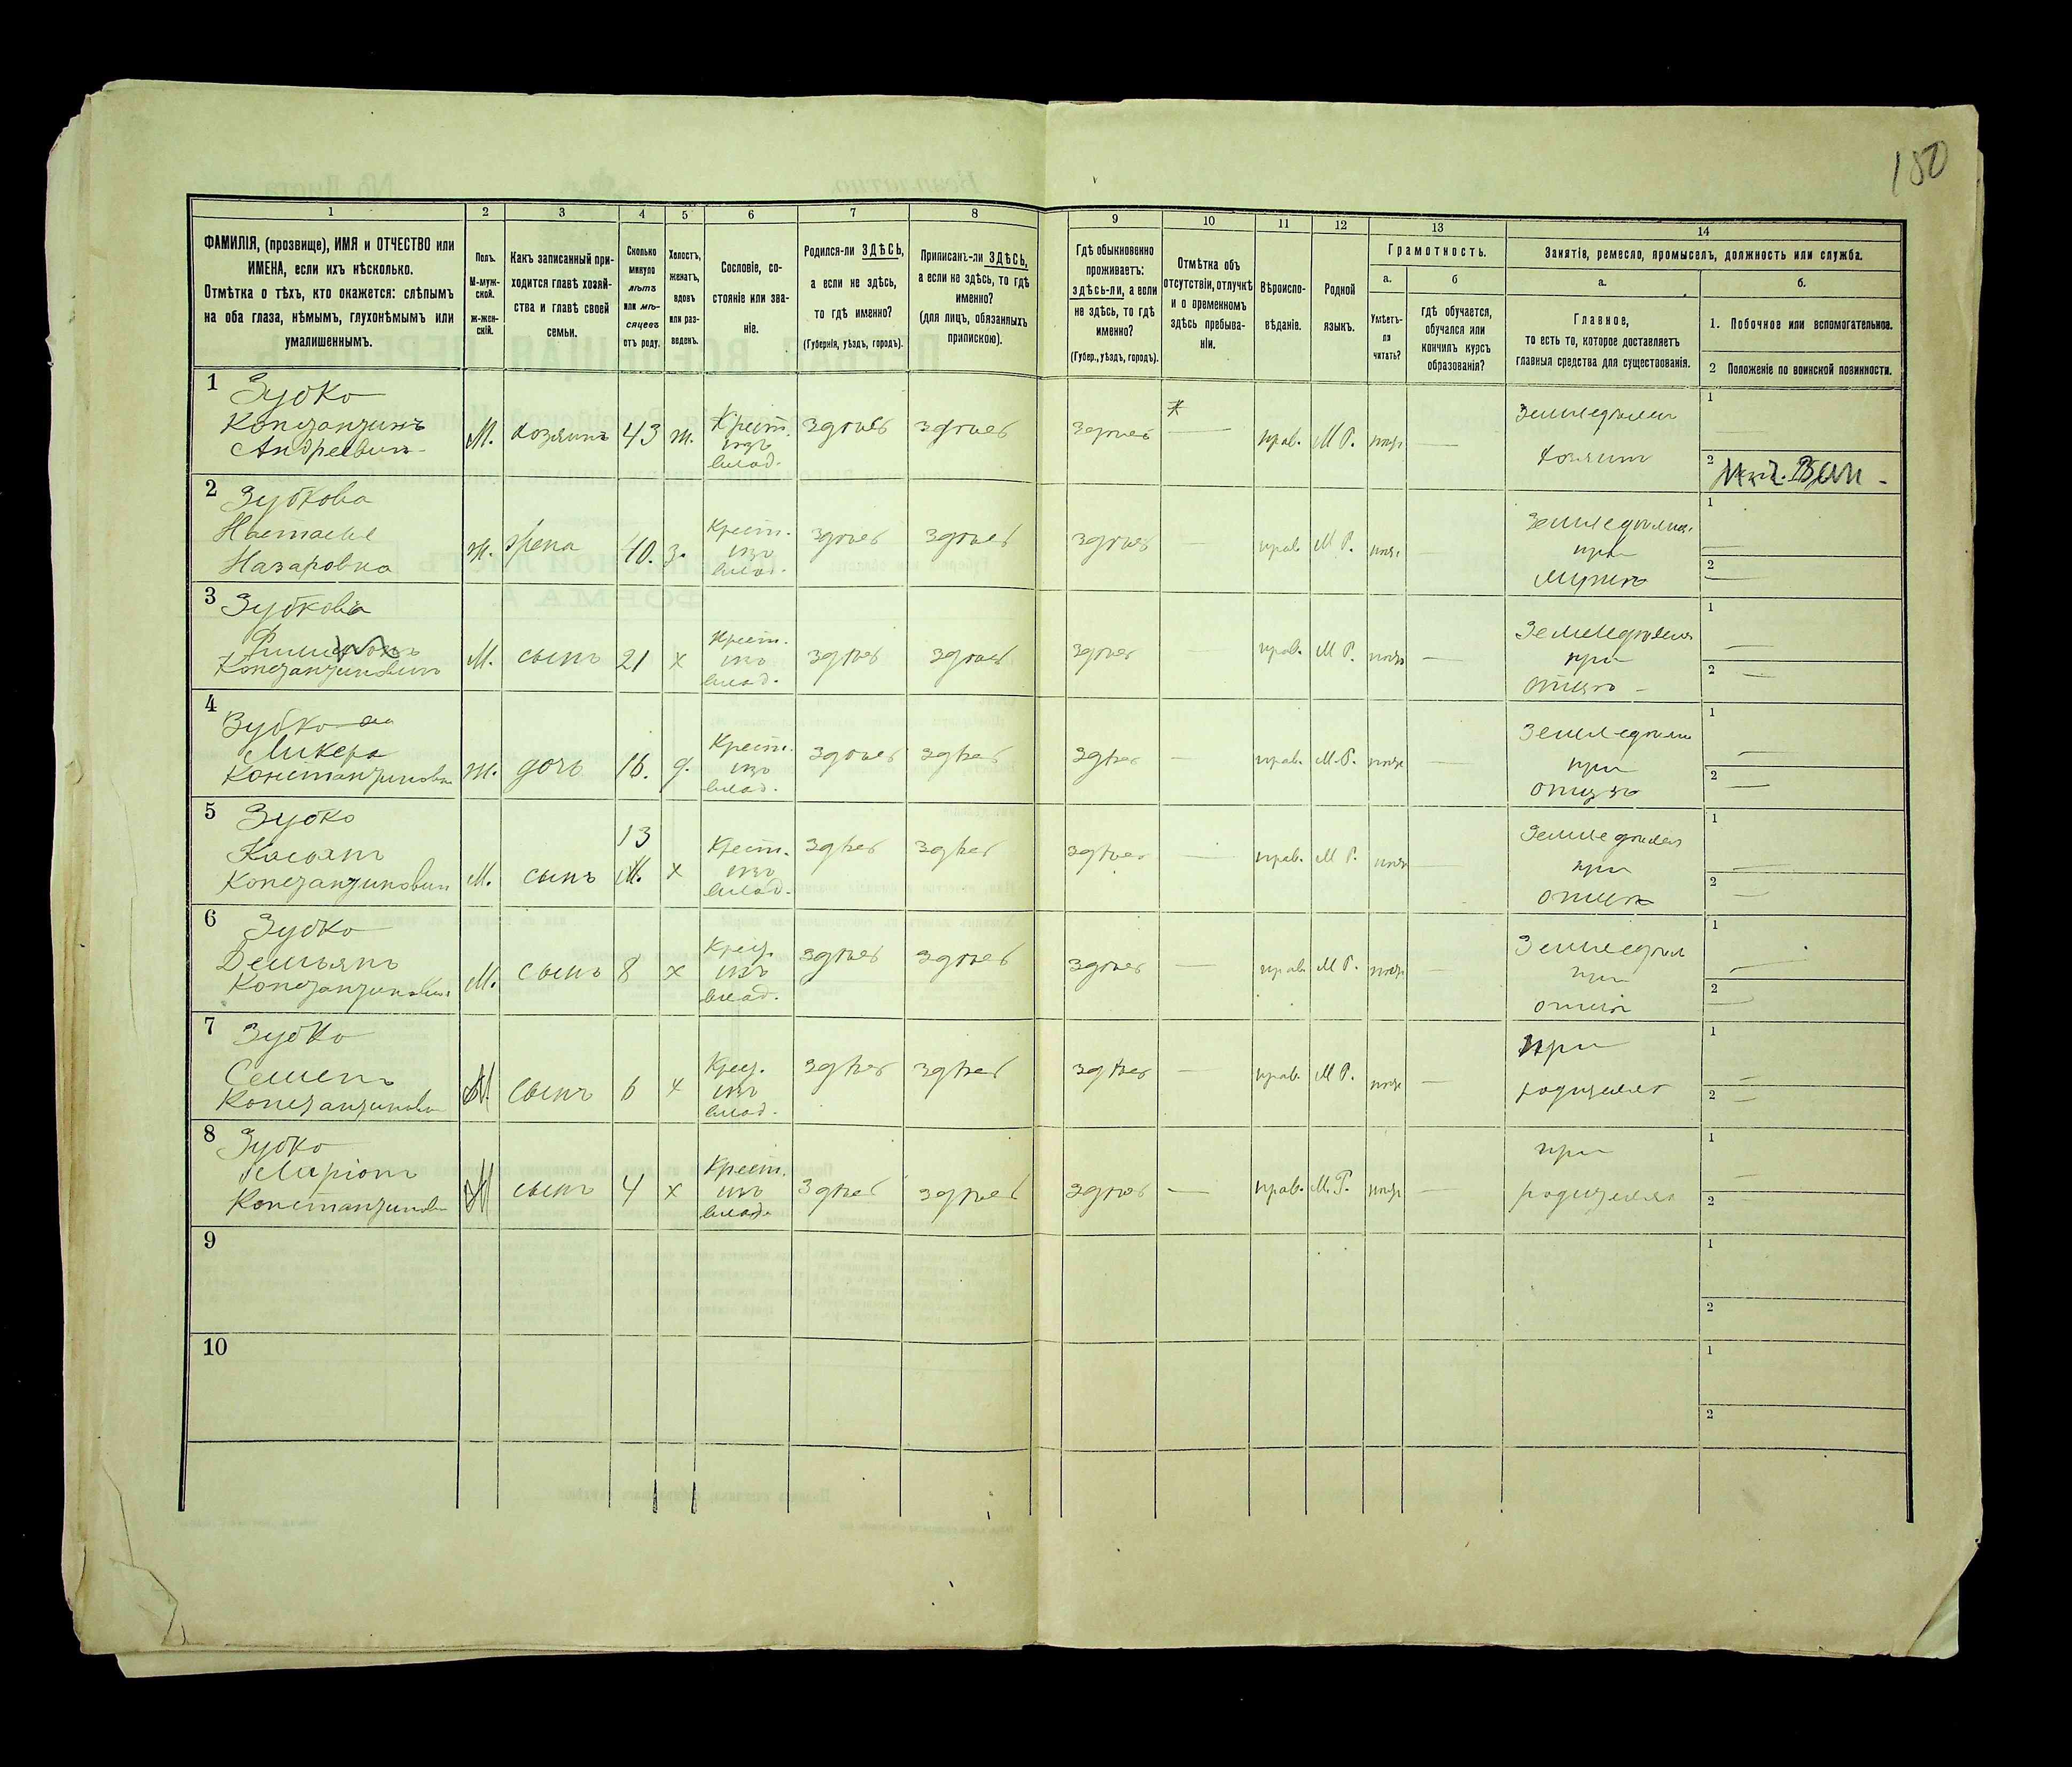 150
1 2 3 4 5 6 7 8 9 10 11 12 13 14
ФАМИЛІЯ, (прозвище), ИМЯ и ОТЧЕСТВО или
ИМЕНА, если ихъ нѣсколько.
Отмѣтка о тѣхъ, кто окажется: слѣпымъ
на оба глаза, нѣмымъ, глухонѣмымъ или
умалишеннымъ.
Полъ.
М-муж-
ской.
ж-жен-
скій.
Какъ записанный при-
ходится главѣ хозяй-
ства и главѣ своей
семьи.
Сколько
минуло
лѣтъ
или мѣ-
сяцевъ
отъ роду.
Холостъ,
женатъ,
вдовъ
или раз-
веденъ.
Сословіе, со-
стояніе или зва-
ніе.
Родился-ли ЗДѢСЬ,
а если не здѣсь,
то гдѣ именно?
(Губернія, уѣздъ, городъ).
Приписанъ-ли ЗДѢСЬ,
а если не здѣсь, то гдѣ
именно?
(для лицъ, обязанныхъ
припискою).
Гдѣ обыкновенно
проживаетъ:
здѣсь-ли, а если
не здѣсь, то гдѣ
именно?
(Губер., уѣздъ, городъ).
Отмѣтка объ
отсутствіи, отлучкѣ
и о временномъ
здѣсь пребыва-
ніи.
Вѣроиспо-
вѣданіе.
Родной
языкъ.
Грамотность.
а.
Умѣетъ-
ли
читать?
б
гдѣ обучается,
обучался или
кончилъ курсъ
образованія?
Занятія, ремесло, промыселъ, должность или служба.
а.
Главное,
то есть то, которое доставляетъ
главныя средства для существованія.
б.
1. Побочное или вспомогательное.
2 Положеніе по воинской повинности.
1 Зубко
Константинъ
Андреевич
М. хозяинъ 43 ж. Крест. изъ влад. здѣсь здѣсь здѣсь — прав. М Р. —
Земледѣлец
хозяин
1
2
2 Зубкова
Настасье
Назаровна
ж. жена 40. з. Крест. изъ влад. здѣсь здѣсь здѣсь — прав. М Р. —
Земледѣлия
при
мужѣ
1
2
3 Зубкова
Константиновичъ
М. сынъ 21 х Крест. изъ влад. здѣсь здѣсь здѣсь — прав. М Р. —
Земледѣлия
при
отцѣ
1
2
4 Зубко
Ликера
Константинова
ж. дочь 16. д. Крест. изъ влад. здѣсь здѣсь здѣсь — прав. М. Р. —
Земледѣли
при
отцѣ
1
2
5 Зубко
Касьян
Константинович
М. сынъ 13 х Крест. изъ влад. здѣсь здѣсь здѣсь — прав. М Р. —
Земледѣлия
при
отцѣ
1
2
6 Зубко
Демьянъ
Константинович
М. сынъ 8 х Крест. изъ влад. здѣсь здѣсь здѣсь — прав М Р. —
Земледѣл
при
отцѣ
1
2
7 Зубко
Семенъ
Константинови
М сынъ 6 х Крест. изъ влад. здѣсь здѣсь здѣсь — прав. М Р. —
при
родителях
1
2
8 Зубко
Миріонъ
Константинов
М сынъ 4 х Крест. изъ влад. здѣсь здѣсь здѣсь — прав. М. Р. —
при
родителях
1
2
9
1
2
10
1
2